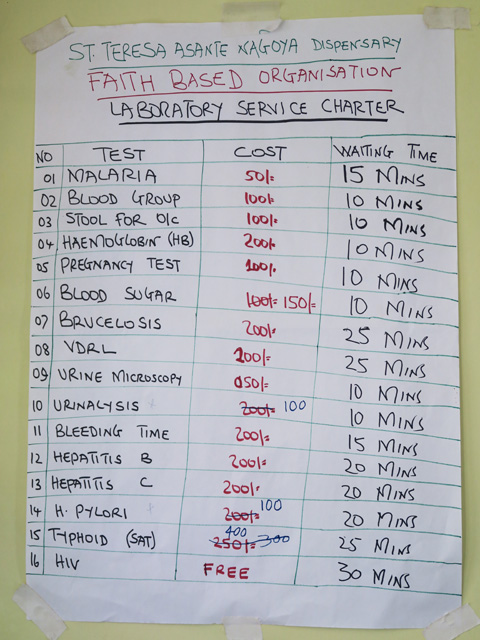 ST. TERESA ASANTE NAGOYA DISPENSARY
FAITH BASED ORGANISATION
LABORATORY SERVICE CHARTER
NO TEST COST WAITING TIME
01 MALARIA 50/= 15 MINS
02 BLOOD GROUP 100/= 10 MINS
03 STOOL FOR O/C 100/= 10 MINS
04 HAEMOGLOBIN (HB) 200/= 10 MINS
05 PREGNANCY TEST 100/= 10 MINS
06 BLOOD SUGAR 100/= 150/= 10 MINS
07 BRUCELOSIS 200/= 25 MINS
08 VDRL 200/= 25 MINS
09 URINE MICROSCOPY 050/= 10 MINS
10 URINALYSIS 200/= 100 10 MINS
11 BLEEDING TIME 200/= 15 MINS
12 HEPATITIS B 200/= 20 MINS
13 HEPATITIS C 200/= 20 MINS
14 H. PYLORI 200/= 100 20 MINS
15 TYPHOID (SAT) 250/= 400 300 25 MINS
16 HIV FREE 30 MINS